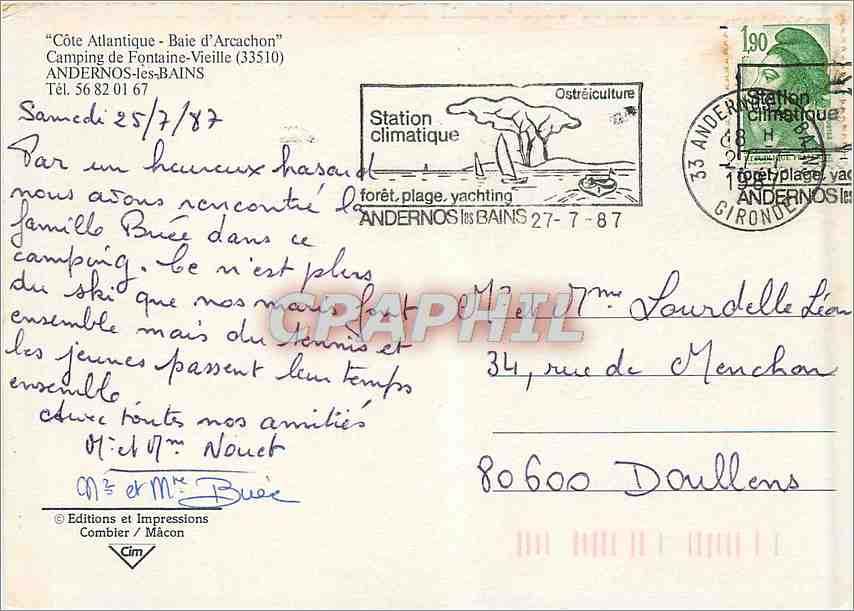 "Côte Atlantique - Baie d'Arcachon"
Camping de Fontaine-Vieille (33510)
ANDERNOS-les-BAINS
Tél. 56 82 01 67
Samedi 25/7/87
Par un heureux hasard
nous avons rencontré la
famille Buée dans ce
camping. Ce n'est plus
du ski que nos maris font
ensemble mais du tennis et
les jeunes passent leur temps
ensemble
Avec toutes nos amitiés
Mr et Mme Nouet
Mr et Mme Buée
© Editions et Impressions
Combier / Mâcon
Cim
Station
climatique
Ostréiculture
forêt, plage, yachting
ANDERNOS les BAINS 27-7-87
1,90
33 ANDERNOS
18 H
27-7
1987
GIRONDE
Station
climatique
forêt, plage, yac
ANDERNOS les
Mr et Mme Lourdelle Léon
34, rue de Menchon
80600 Doullens
CPARPHIL